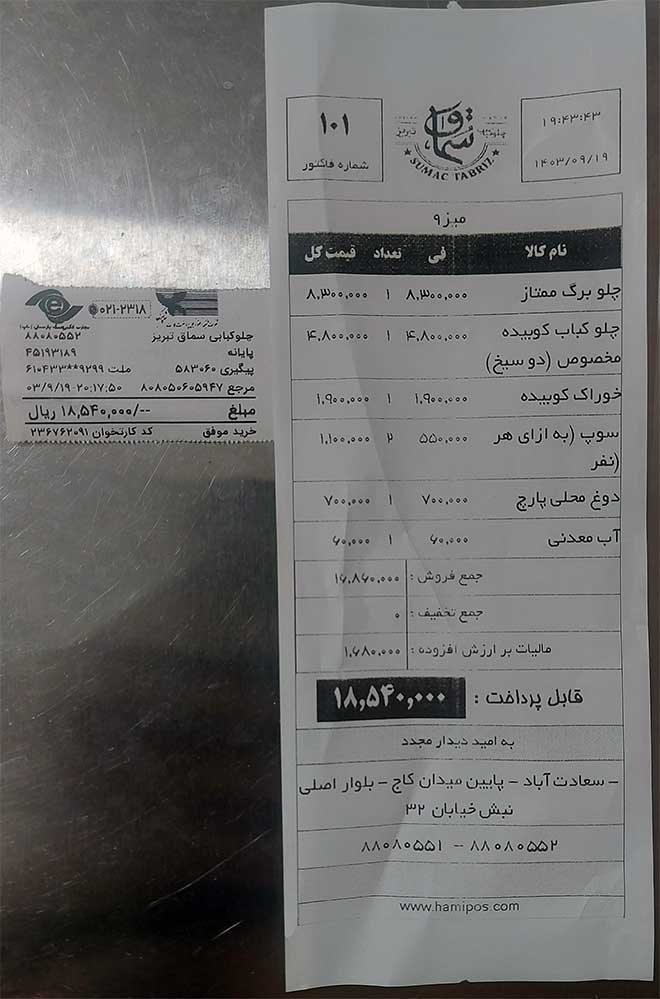 ۱۰۱
شماره فاکتور
سماق
چلوکبابی تبریز
SUMAC TABRIZ
۱۹:۴۳:۴۳
۱۴۰۳/۰۹/۱۹
میز ۹
نام کالا فی تعداد قیمت کل
چلو برگ ممتاز ۸,۳۰۰,۰۰۰ ۱ ۸,۳۰۰,۰۰۰
چلو کباب کوبیده ۴,۸۰۰,۰۰۰ ۱ ۴,۸۰۰,۰۰۰
مخصوص (دو سیخ)
خوراک کوبیده ۱,۹۰۰,۰۰۰ ۱ ۱,۹۰۰,۰۰۰
سوپ (به ازای هر ۵۵۰,۰۰۰ ۲ ۱,۱۰۰,۰۰۰
نفر)
دوغ محلی پارچ ۷۰۰,۰۰۰ ۱ ۷۰۰,۰۰۰
آب معدنی ۶۰,۰۰۰ ۱ ۶۰,۰۰۰
جمع فروش : ۱۶,۸۶۰,۰۰۰
جمع تخفیف : ۰
مالیات بر ارزش افزوده : ۱,۶۸۰,۰۰۰
قابل پرداخت : ۱۸,۵۴۰,۰۰۰
به امید دیدار مجدد
- سعادت آباد - پایین میدان کاج - بلوار اصلی
نبش خیابان ۳۲
۸۸۰۸۰۵۵۱ -- ۸۸۰۸۰۵۵۲
www.hamipos.com
۰۲۱-۲۳۱۸
چلوکبابی سماق تبریز ۸۸۰۸۰۵۵۲
پایانه ۴۵۱۹۳۱۸۹
پیگیری ۵۸۳۰۶۰ ملت ۶۱۰۴۳۳**۹۲۹۹
مرجع ۸۰۸۰۵۰۶۰۵۹۴۷ ۰۳/۹/۱۹-۲۰:۱۷:۵۰
مبلغ ۱۸,۵۴۰,۰۰۰/-- ریال
خرید موفق کد کارتخوان ۲۳۶۷۶۲۰۹۱